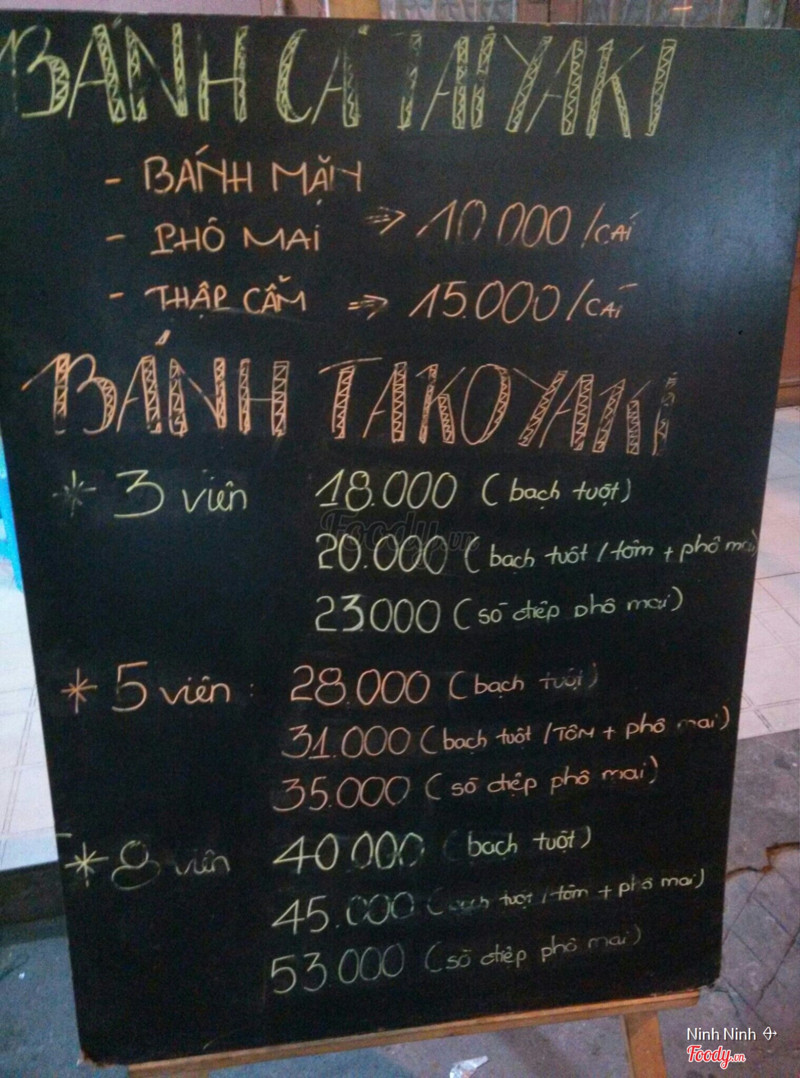 BÁNH CÁ TAIYAKI
- BÁNH MẶN
- PHÔ MAI => 10.000/CÁI
- THẬP CẨM => 15.000/CÁI
BÁNH TAKOYAKI
* 3 viên 18.000 (bạch tuột)
20.000 (bạch tuột/tôm + phô mai)
23.000 (sò điệp phô mai)
* 5 viên: 28.000 (bạch tuột)
31.000 (bạch tuột/TÔM + phô mai)
35.000 (sò điệp phô mai)
* 8 viên 40.000 (bạch tuột)
45.000 (bạch tuột/tôm + phô mai)
53.000 (sò điệp phô mai)
Foody.vn
Ninh Ninh
Foody.vn